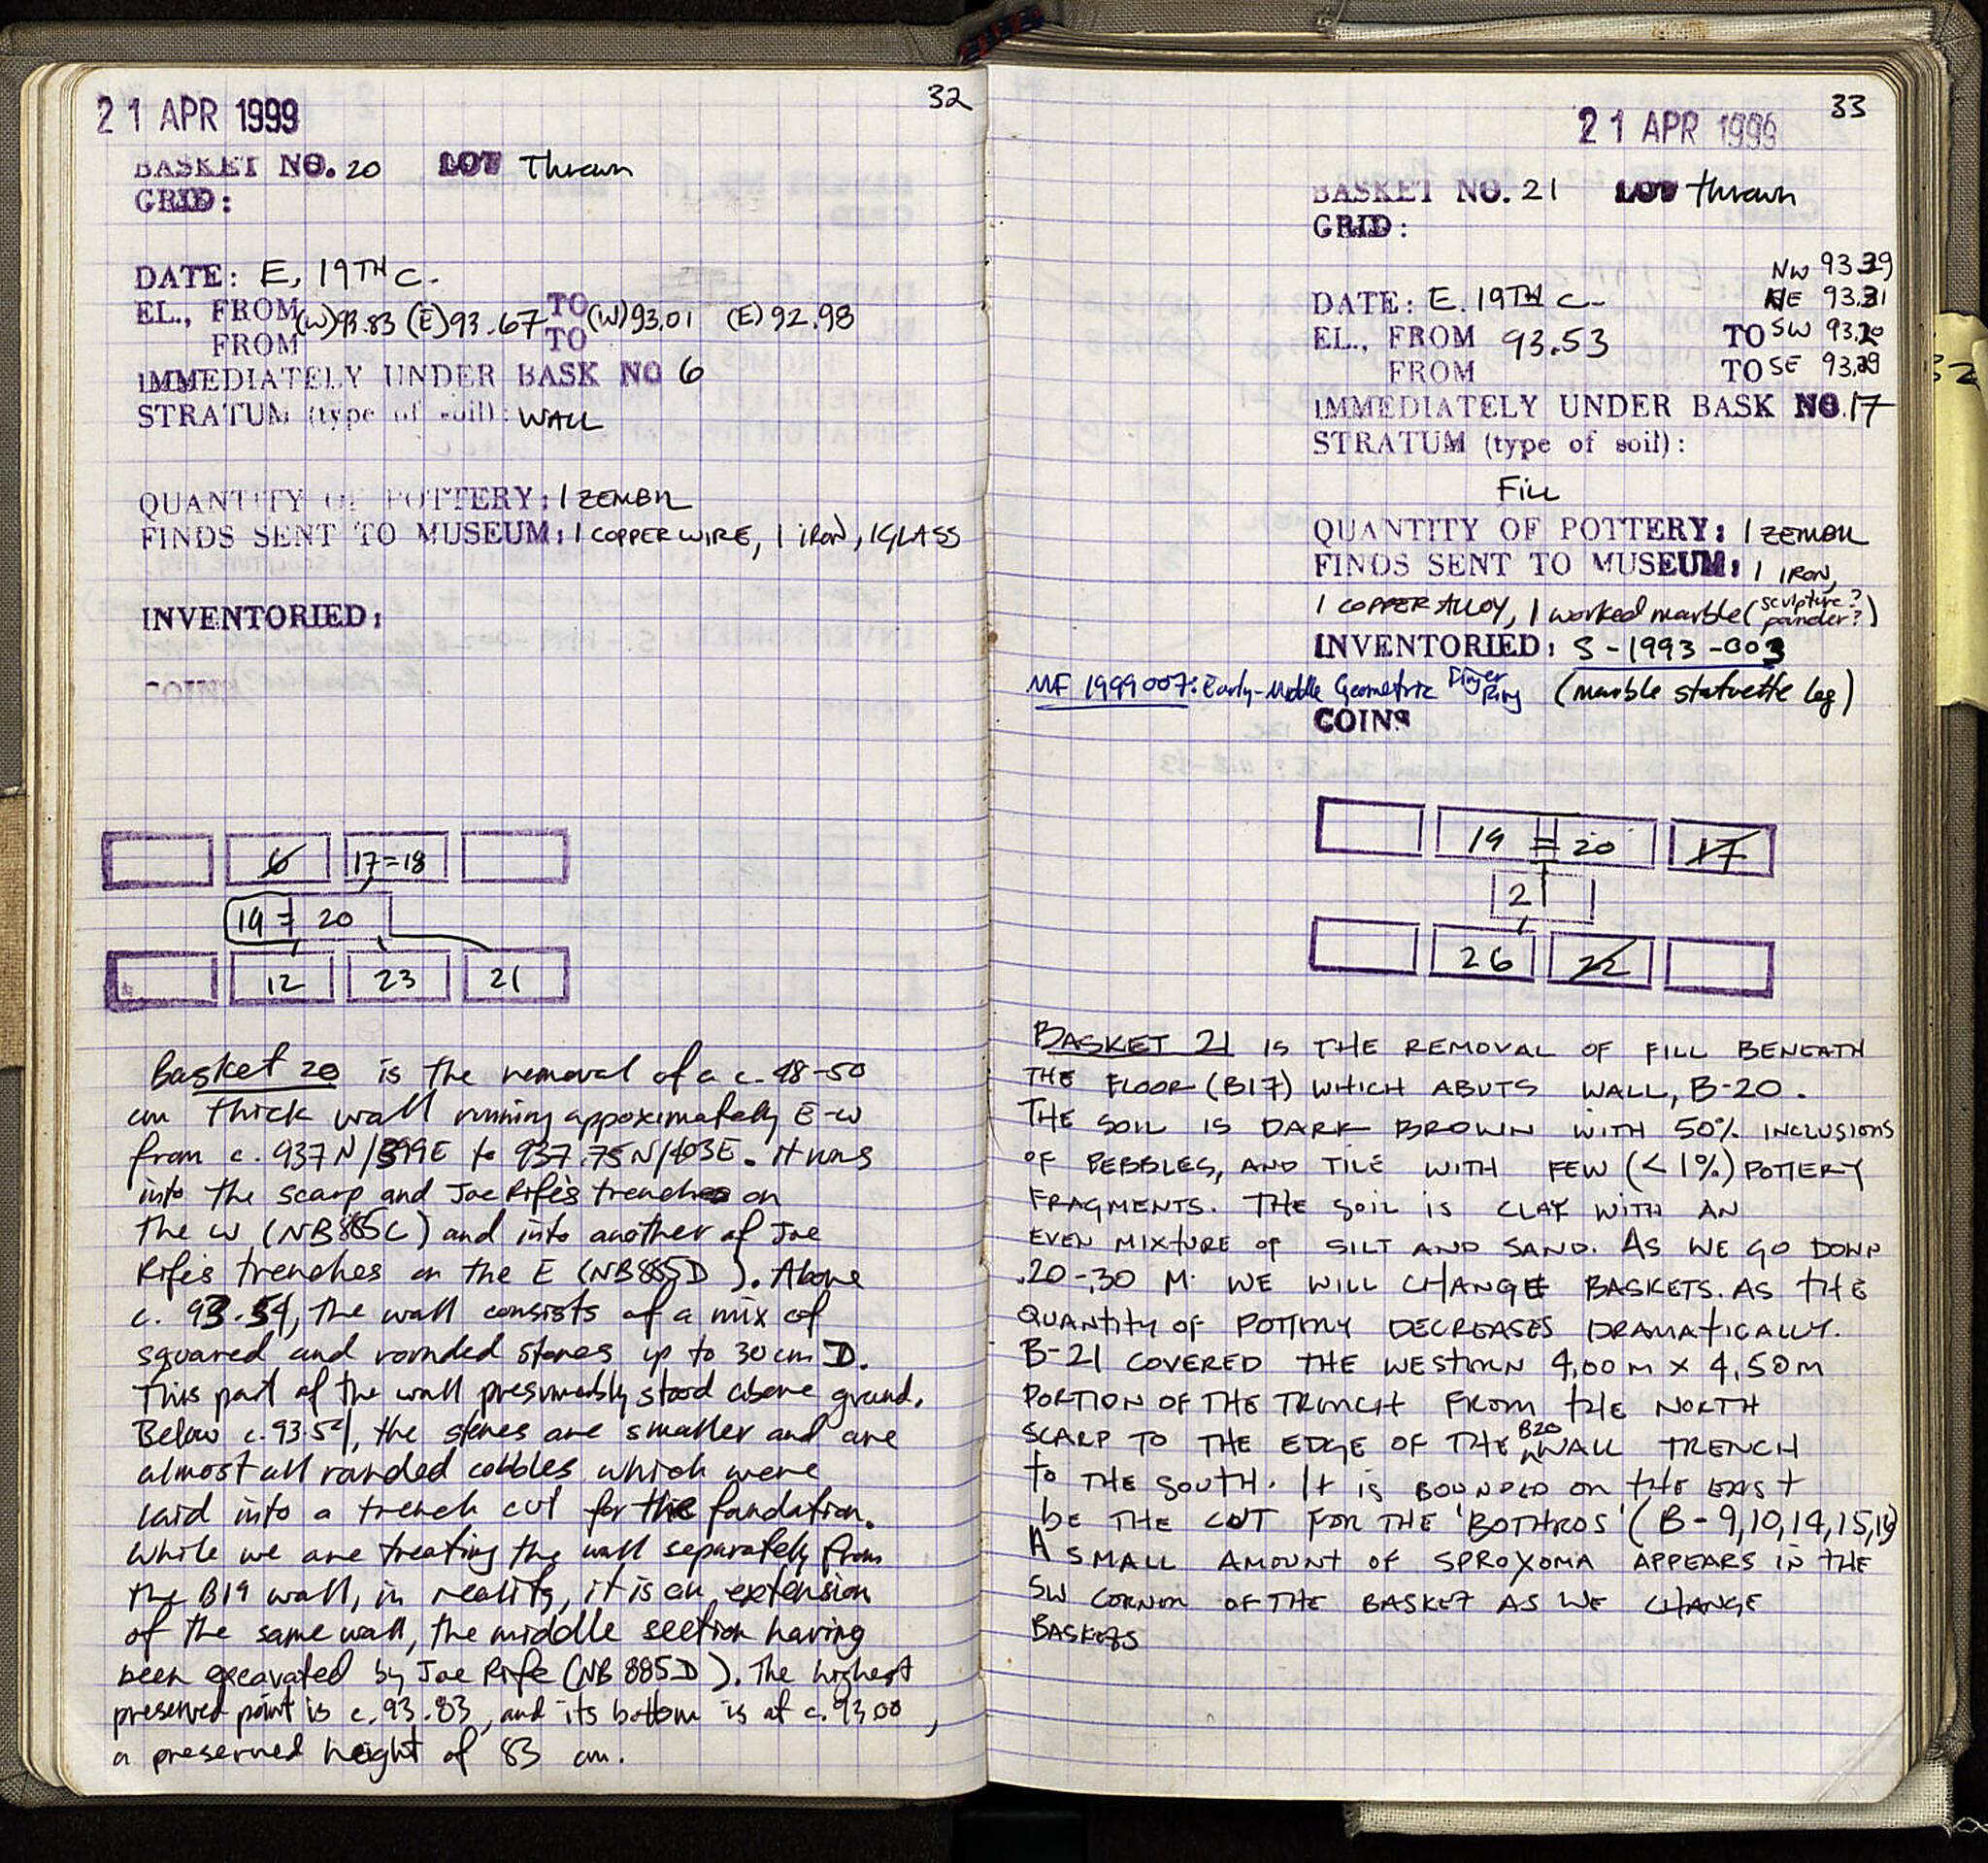 32
21 APR 1999
BASKET NO. 20 LOT Thrown
GRID:
DATE: E. 19TH C.
EL., FROM (W)93.83 (E)93.67 TO (W)93.01 (E)92.98
FROM TO
IMMEDIATELY UNDER BASK NO 6
STRATUM (type of soil): WALL
QUANTITY OF POTTERY: 1 ZEMBIL
FINDS SENT TO MUSEUM: 1 COPPER WIRE, 1 IRON, 1 GLASS
INVENTORIED:
6 17=18
19 = 20
12 23 21
Basket 20 is the removal of a c. 48-50
cm thick wall running appoximately E-W
from c. 937N/399E to 937.75N/403E. It runs
into the scarp and Joe Rife's trenches on
the W (NB 885C) and into another of Joe
Rife's trenches on the E (NB 885D). Above
c. 93.54, the wall consists of a mix of
squared and rounded stones up to 30 cm D.
This part of the wall presumably stood above ground.
Below c. 93.54, the stones are smaller and are
almost all rounded cobbles which were
laid into a trench cut for the foundation.
While we are treating the wall separately from
the B19 wall, in reality, it is an extension
of the same wall, the middle section having
been excavated by Joe Rife (NB 885D). The highest
preserved point is c. 93.83, and its bottom is at c. 93.00,
a preserved height of 83 cm.
33
21 APR 1999
BASKET NO. 21 LOT thrown
GRID:
NW 93.29
NE 93.31
DATE: E. 19TH C.
EL., FROM 93.53 TO SW 93.20
FROM TO SE 93.29
IMMEDIATELY UNDER BASK NO. 17
STRATUM (type of soil):
FILL
QUANTITY OF POTTERY: 1 ZEMBIL
FINDS SENT TO MUSEUM: 1 IRON,
1 COPPER ALLOY, 1 worked marble (sculpture? pounder?)
INVENTORIED: S-1993-003
MF 1999 007: Early-Middle Geometric Finger Ring (marble statuette leg)
COINS
19 = 20 17
21
26 22
BASKET 21 IS THE REMOVAL OF FILL BENEATH
THE FLOOR (B17) WHICH ABUTS WALL, B-20.
THE SOIL IS DARK BROWN WITH 50% INCLUSIONS
OF PEBBLES, AND TILE WITH FEW (<1%) POTTERY
FRAGMENTS. THE SOIL IS CLAY WITH AN
EVEN MIXTURE OF SILT AND SAND. AS WE GO DOWN
.20-.30 M. WE WILL CHANGE BASKETS. AS THE
QUANTITY OF POTTERY DECREASES DRAMATICALLY.
B-21 COVERED THE WESTERN 4.00 m x 4.50 m
PORTION OF THE TRENCH FROM THE NORTH
SCARP TO THE EDGE OF THE B20 WALL TRENCH
TO THE SOUTH. It is BOUNDED ON THE EAST
be THE CUT FOR THE 'BOTHROS' (B-9,10,14,15,
A SMALL AMOUNT OF SPROXOMA APPEARS IN THE
SW CORNER OF THE BASKET AS WE CHANGE
BASKETS